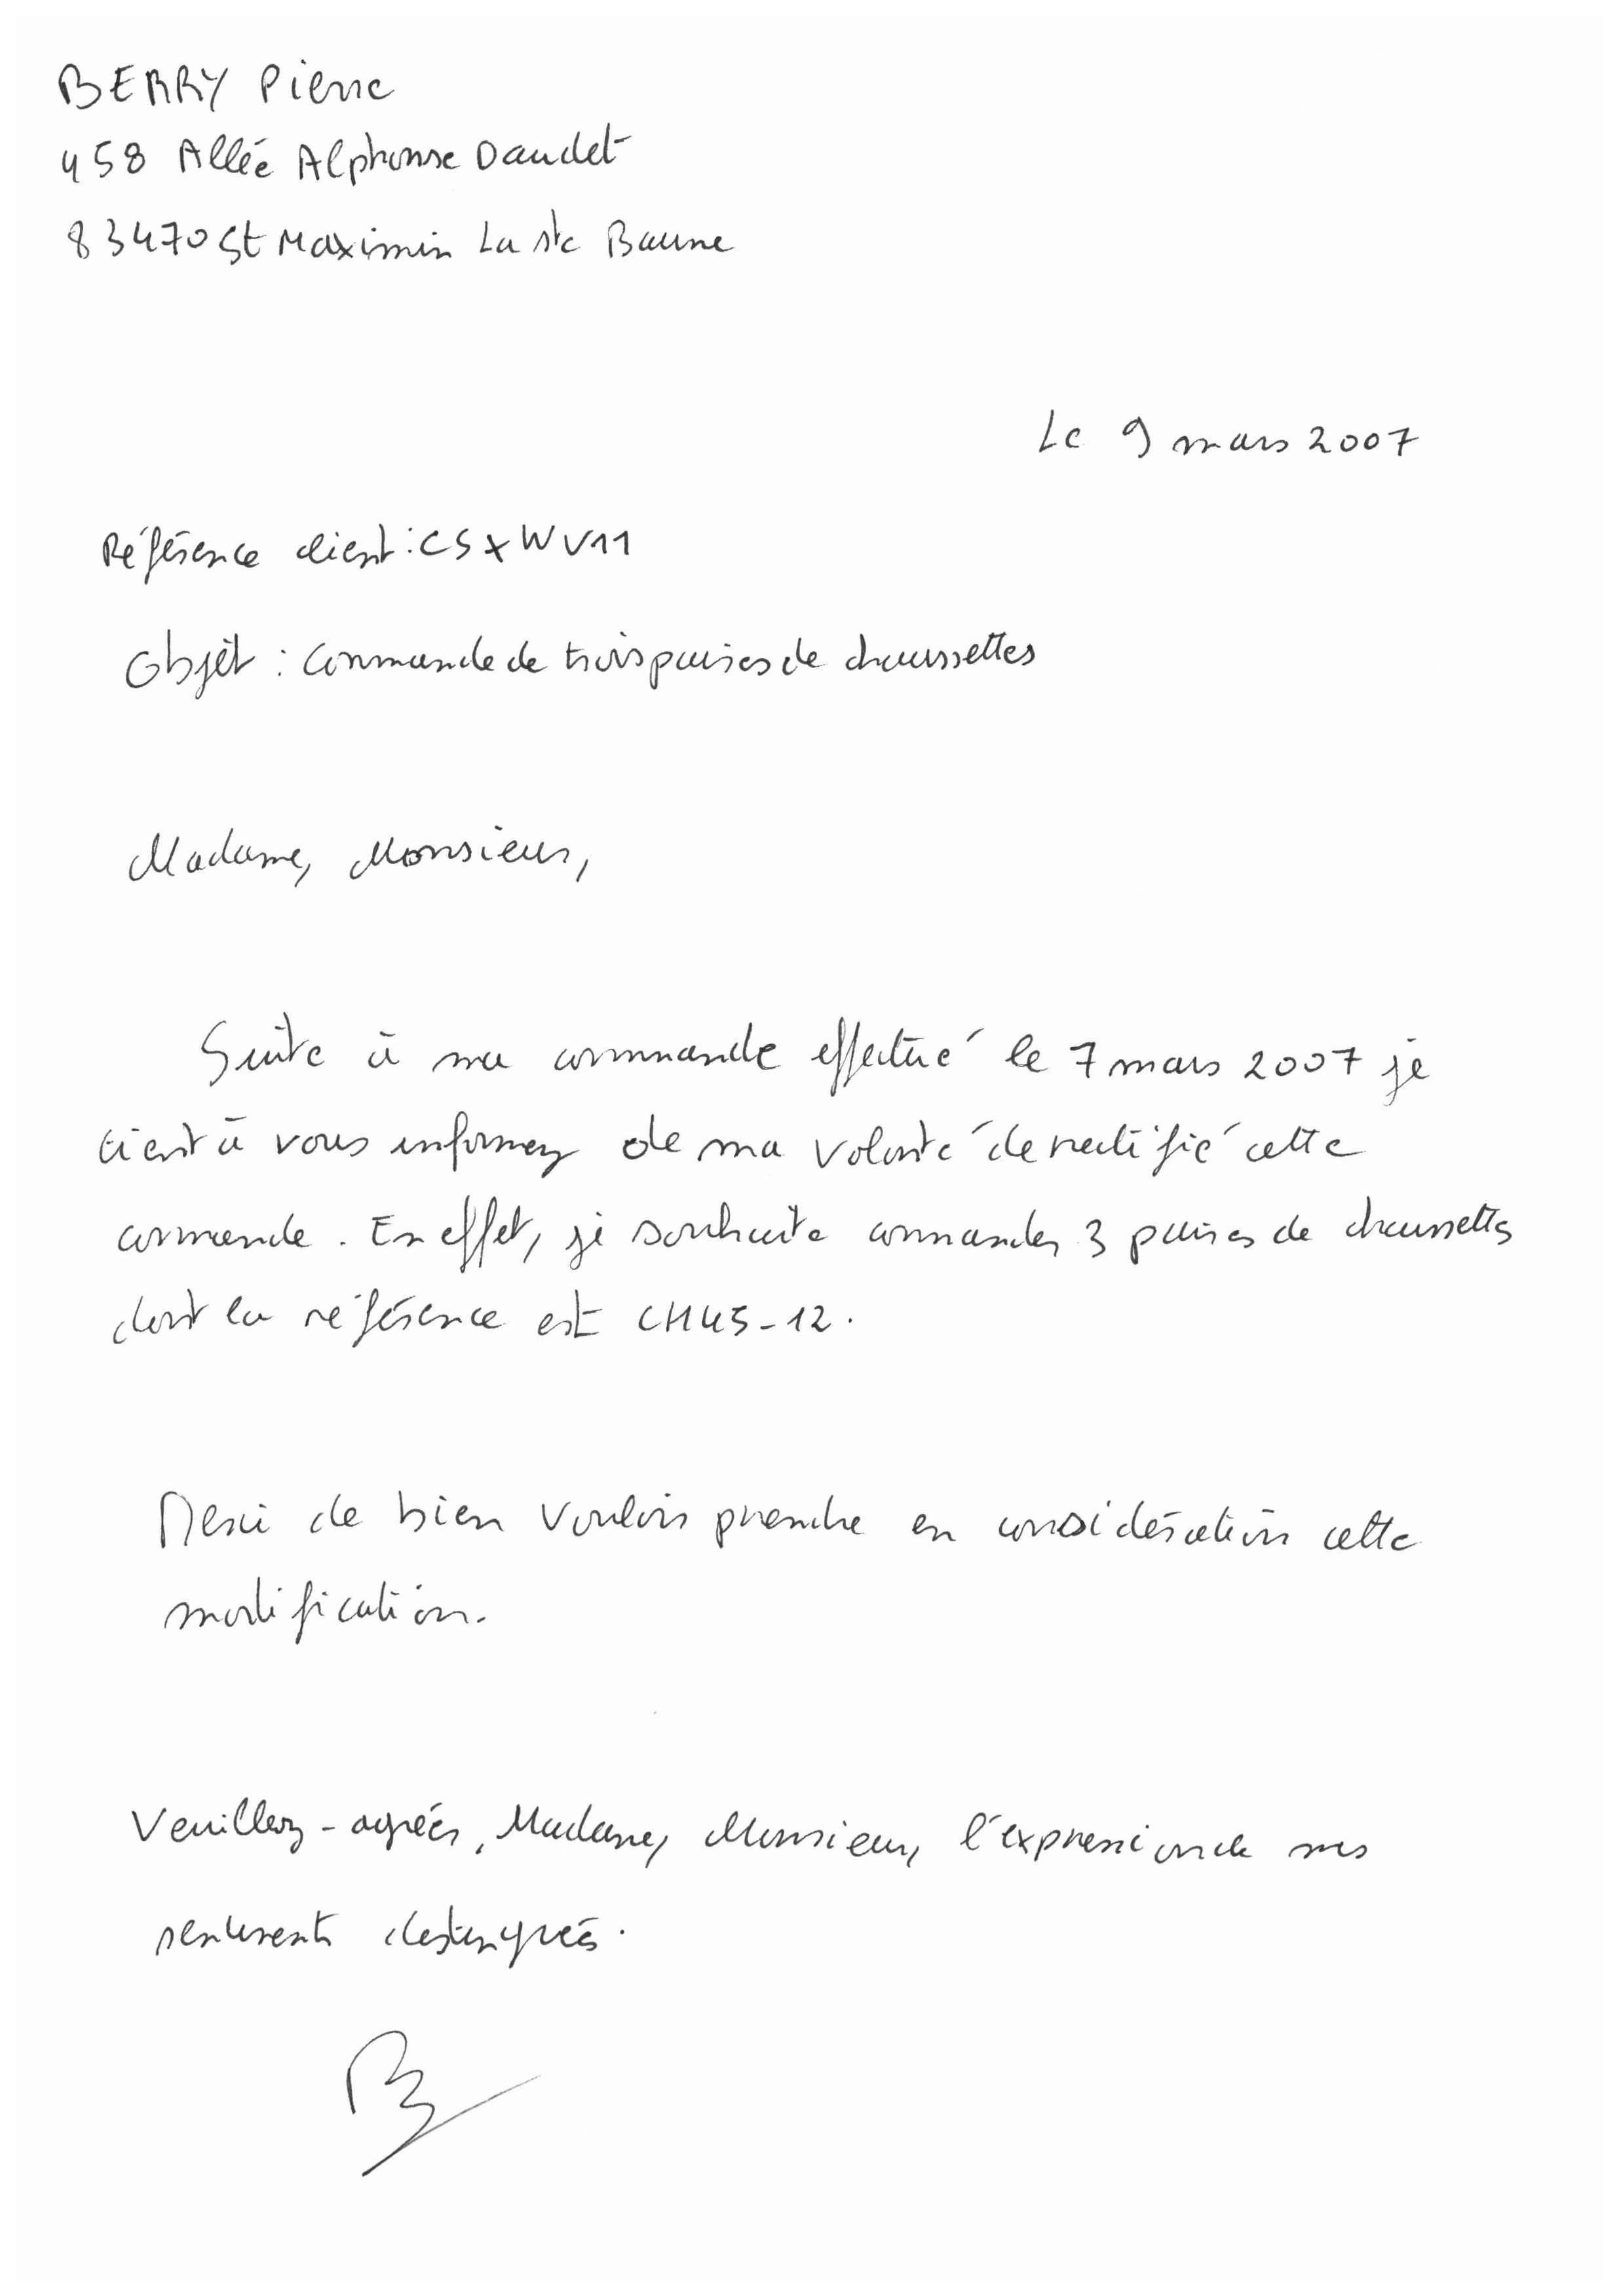 BERRY Pierre
458 Allée Alphonse Daudet
83470 St Maximin La ste Baume
Le 9 mars 2007
Référence client : CSXWV11
Objet : Commande de trois paires de chaussettes
Madame, Monsieur,
Suite à ma commande effectué le 7 mars 2007 je
tient à vous informez de ma volonté de rectifié cette
commande. En effet, je souhaite commander 3 paires de chaussettes
dont la référence est CH45-12.
Merci de bien vouloir prendre en considération cette
modification.
Veuillez-agréer, Madame, Monsieur, l'expression de mes
sentiments distingués.